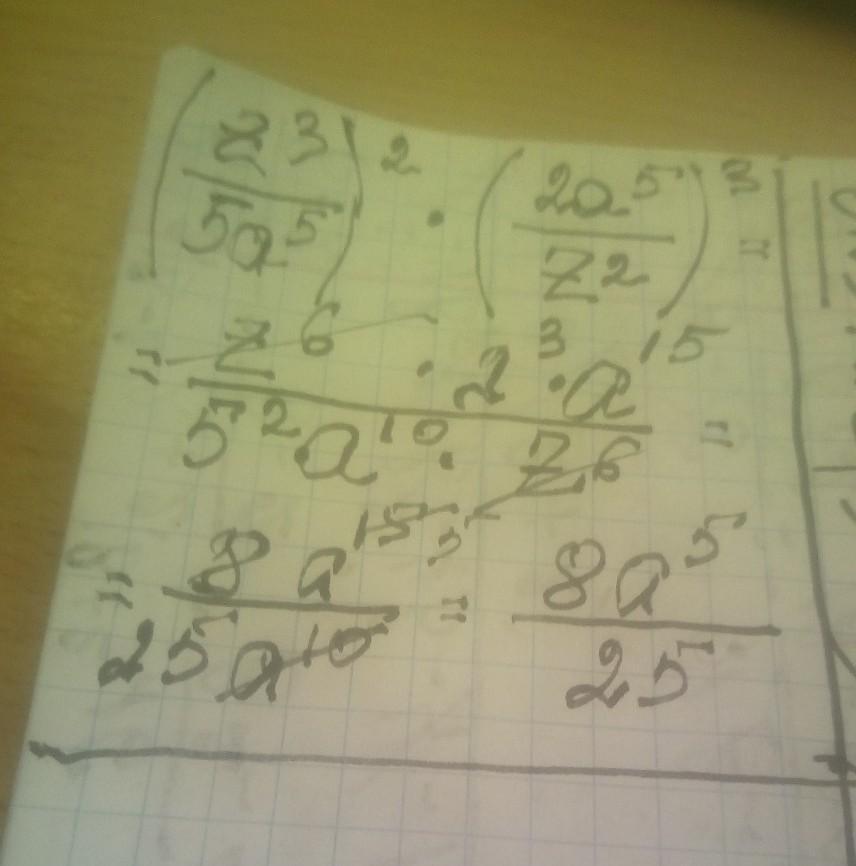 (z³/5a⁵)² · (2a⁵/z²)³ =
= z⁶ · 2³ · a¹⁵ / 5² · a¹⁰ · z⁶ =
= 8a¹⁵ ⁵ / 25a¹⁰ = 8a⁵ / 25